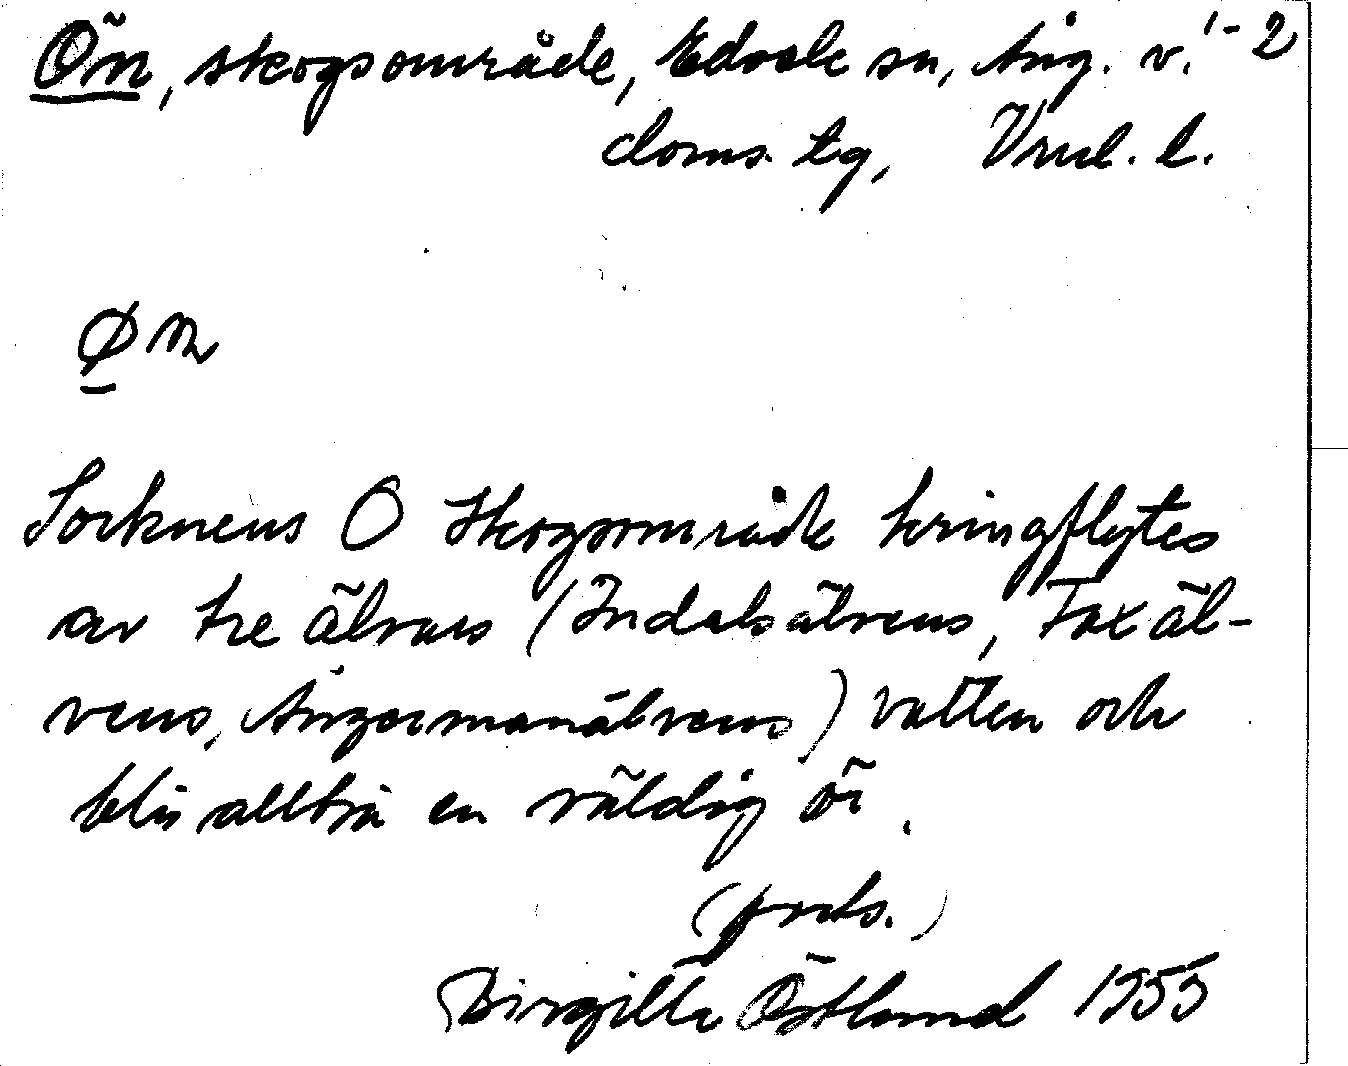 Ön, skogsområde, Edsele sn, Ång. v. 1-2
doms. tg, Vnrl. l.
Øn
Socknens Ö Skogsområde kringflytes
av tre älvars (Indalsälvens, Faxäl-
vens, Ångermanälvens) vatten och
blir alltså en väldig ö.
(forts.)
Birgitta Östlund 1955